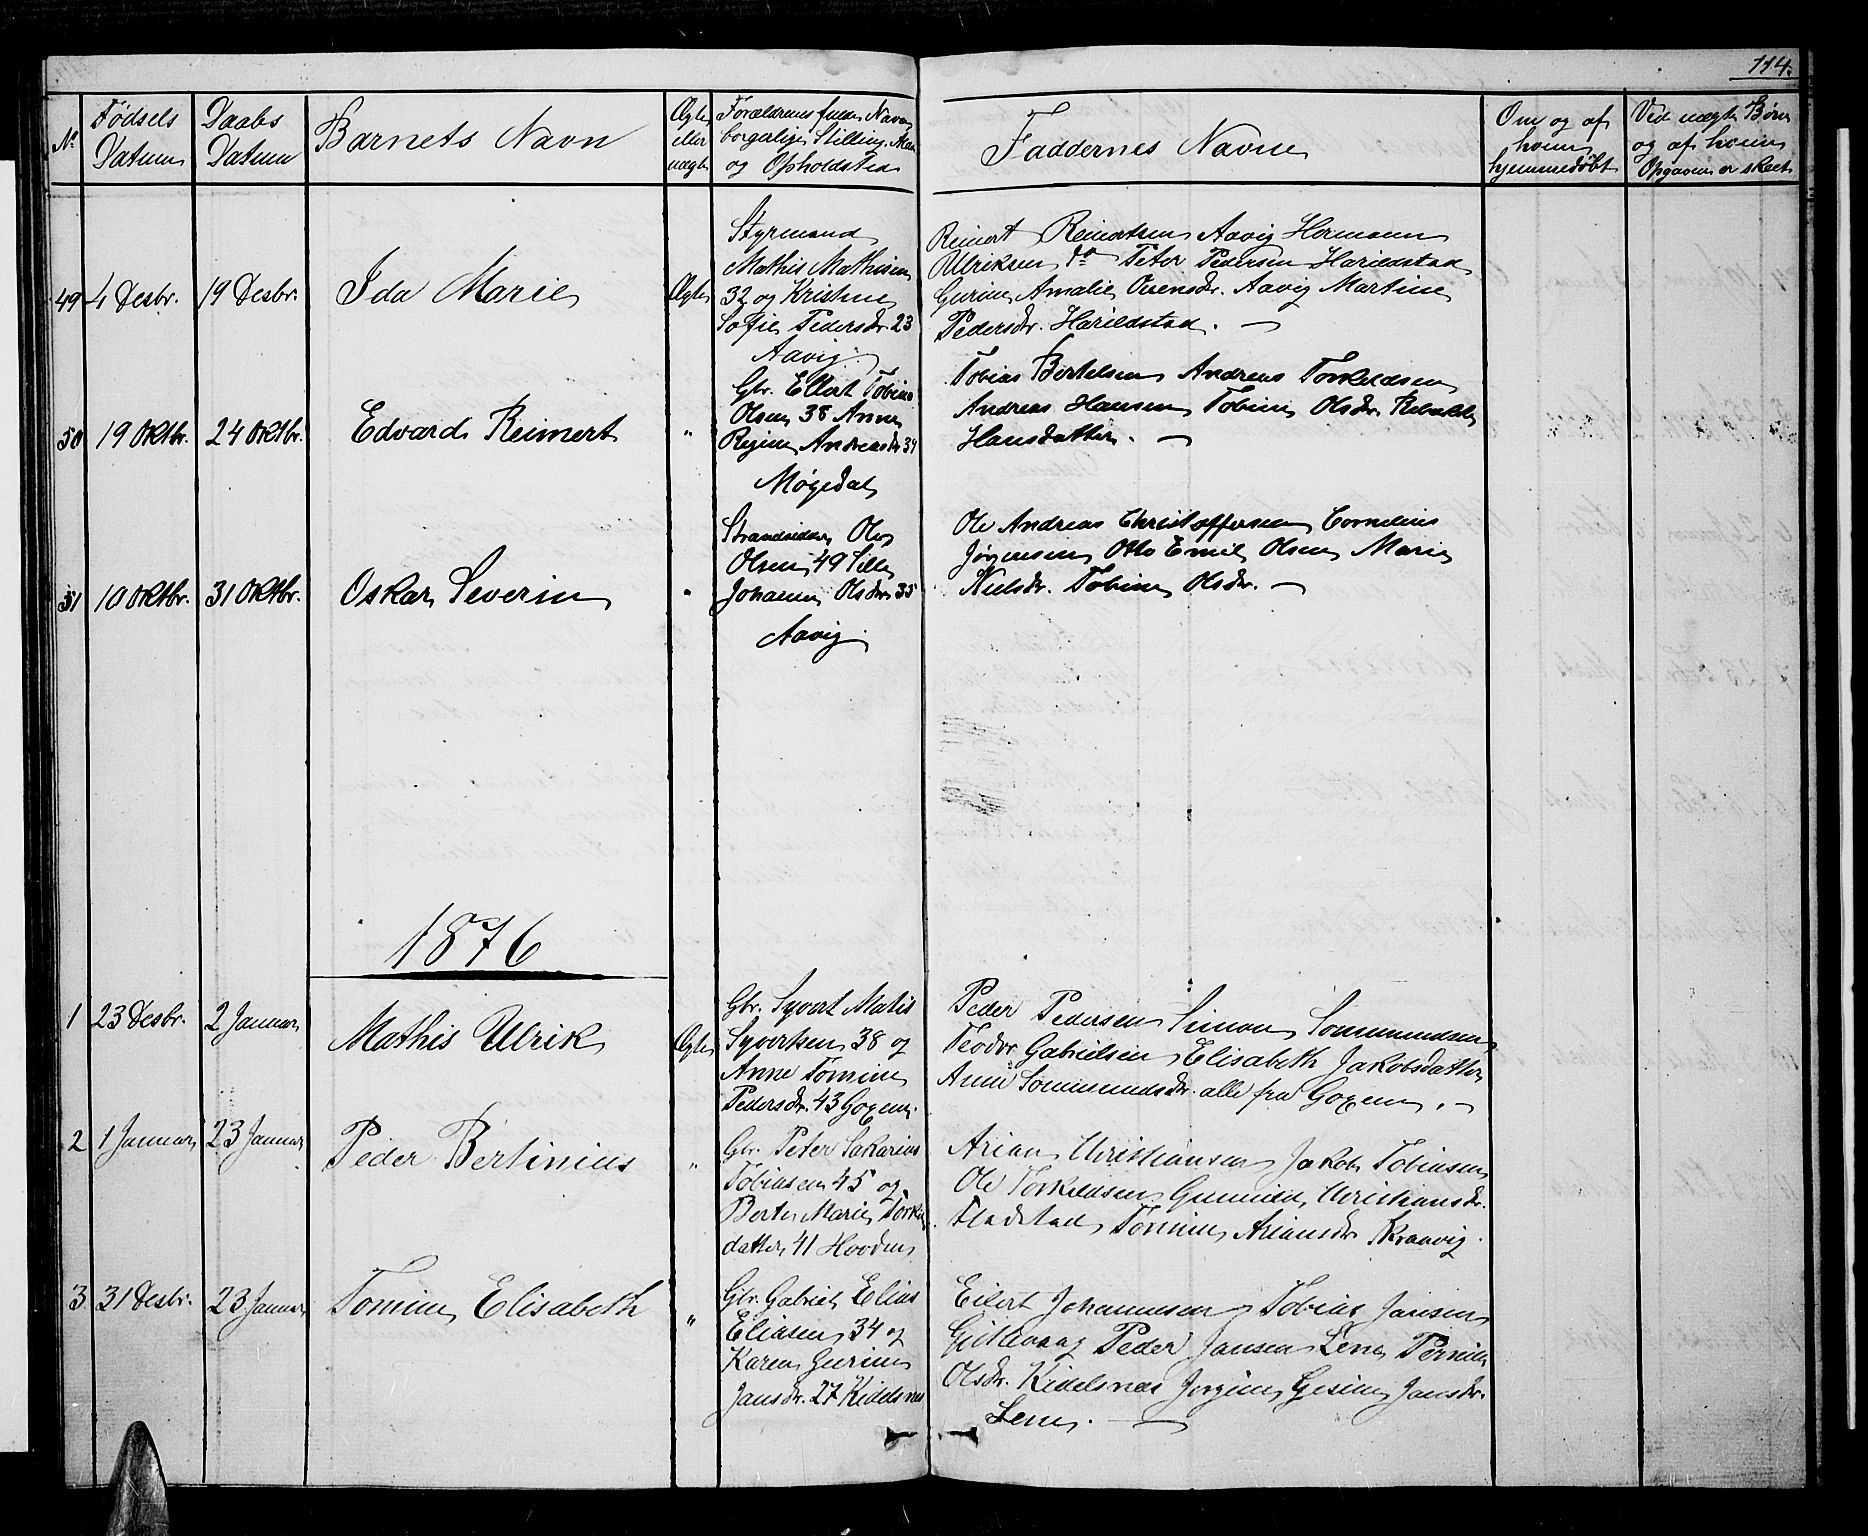 114.
No
Fødsels Datum
Daabs Datum
Barnets Navn
Ægte eller uægte
Forældrenes fulde Navn
borgerlige Stilling, Alder
og Opholdsted
Faddernes Navne
Om og af hvem hjemmedøbt
Ved uægte Børn og af hvem Opgaven er skeet
49 4 Desbr. 19 Desbr. Ida Marie Ægte
Styrmand
Mathis Mathisen
32 og Kristine
Sofie Pedersdr. 23
Aavig.
Reinert Reinertsen Aavig Hermann
Ulriksen do Peter Pedersen Harildstad
Gurine Amalie Ovensdr. Aavig Martine
Pedersdr. Harildstad. —
50 19 Oktbr. 24 Oktbr. Edvard Reinert "
Gbr. Ellert Tobias
Olsen 38 Anne
Regine Andreasdr 34
Møgedal
Tobias Bertelsen Andreas Torkeldsen
Andreas Hansen Tobine Olsdr.
Hansdatter. —
51 10 Oktbr. 31 Oktbr. Oskar Severin "
Strandsidder Ole
Olsen 49 Sille
Johanne Olsdr 35
Aavig.
Ole Andreas Christoffersen Cornelius
Jørgensen Otto Emil Olsen Marie
Nielsdr. Tobine Olsdr. —
1876
1 23 Desbr. 2 Januar Mathis Ulrik Ægte
Gbr. Syvert Matis
Syvertsen 38 og
Anne Tomine
Pedersdr. 43 Goxem.
Peder Pedersen Simon Sommundsen
Teodor Gabrielsen Elisabeth Jakobsdatter
Anne Sommundsdr. alle fra Goxem. —
2 1 Januar 23 Januar Peder Bertinius "
Gbr. Peter Sakarias
Tobiasen 45 og
Berte Marie Torkels
datter 41 Hovden
Arian Christiansen Jakob Tobiasen
Ole Torkeldsen Gunnild Christiansdr.
Fladstad Tomine Ariansdr Kraavig.
3 31 Desbr. 23 Januar Tomine Elisabeth "
Gbr. Gabriel Elias
Eliasen 34 og
Karen Gurine
Jansdr. 27 Kidelsnes
Eilert Johannesen Tobias Jansen
Gitlevaag Peder Jansen Lene Pernille
Olsdr. Kidelsnes Jorgine Gesine Jansdr.
Lene. —